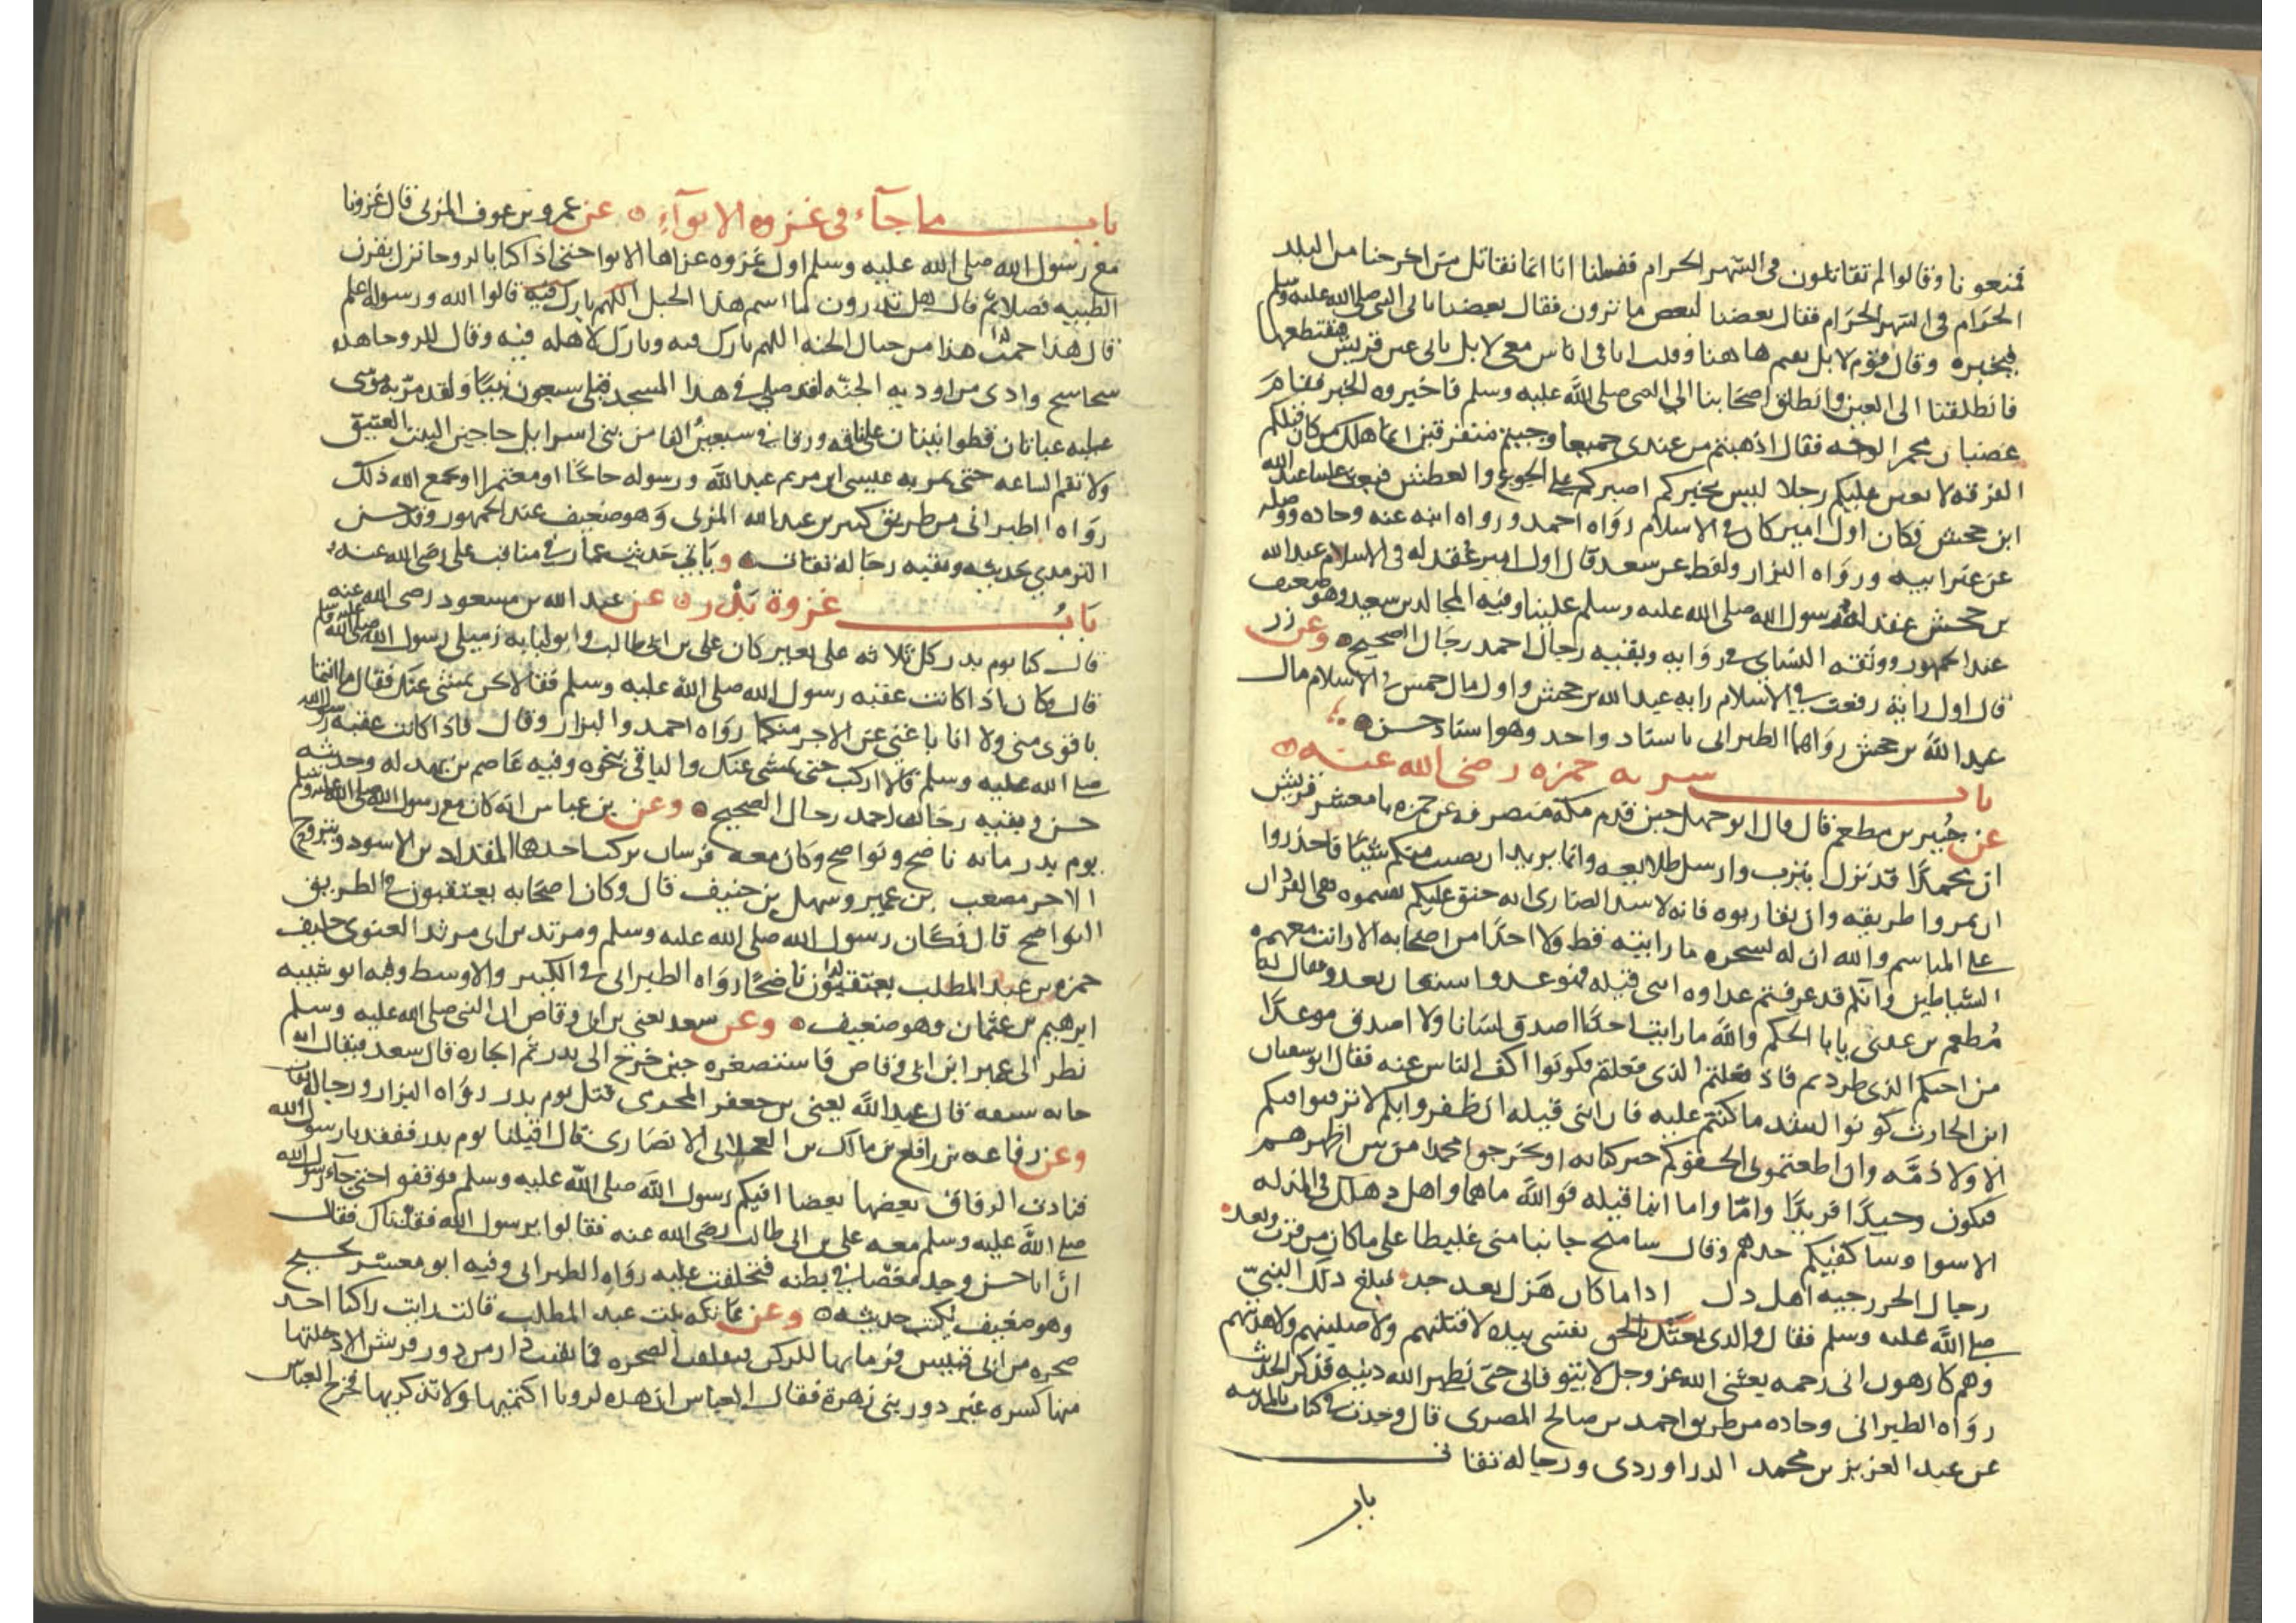 فمنعونا وقالوا لم تقاتلون فى الشهر الحرام فقلنا انا انما نقاتل من اخرجنا من البلد
الحرام فى الشهر الحرام فقال بعضنا لبعض ما ترون فقال بعضنا ناتى النبى صلى الله عليه وسلم
فنخبره وقال قوم لا بل نقيم هاهنا وقلت انا فى اناس معى لا بل ناتى عير قريش فنقتطعها
فانطلقنا الى العير وانطلق اصحابنا الى النبى صلى الله عليه وسلم فاخبروه الخبر فقام
غضبان محمر الوجه فقال اذهبتم من عندى جميعا وجيتم متفرقين انما اهلك من كان قبلكم
الفرقه لابعثن عليكم رجلا ليس بخيركم اصبركم على الجوع والعطش فبعث علينا عبد الله
ابن جحش فكان اول امير كان فى الاسلام رواه احمد ورواه ابنه عنه وجاده ووصله
عن غير ابيه ورواه البزار ولفظه عن سعد قال اول امير عقد له فى الاسلام عبد الله
بن جحش عقد له رسول الله صلى الله عليه وسلم علينا وفيه المجالد بن سعيد وهو ضعيف
عند الجمهور ووثقه النساى فى روايه وبقيه رجال احمد رجال الصحيح وعن زر
قال اول راية رفعت فى الاسلام رايه عبد الله بن جحش واول مال خمس فى الاسلام مال
عبد الله بن جحش رواهما الطبرانى باسناد واحد وهو اسناد حسن
باب سريه حمزه رضى الله عنه
عن جبير بن مطعم قال قال ابو جهل حين قدم مكة منصرفه عن حمزه يا معشر قريش
ان محمدا قد نزل يثرب وارسل طلايعه وانما يريد ان يصيب منكم شيئا فاحذروا
ان تمروا طريقه وان تقاربوه فانه كالاسد الضارى انه حنق عليكم نفيتموه نفى القردان
على المناسم والله ان له لسحره ما رايته قط ولا احدا من اصحابه الا رايت معهم
الشياطين وانكم قد عرفتم عداوه ابنى قيله فهو عدو استعان بعدو فقال له
مطعم بن عدى يا با الحكم والله ما رايت احدا اصدق لسانا ولا اصدق موعدا
من اخيكم الذى طردتم فاذ فعلتم الذى فعلتم فكونوا اكف الناس عنه فقال ابو سفيان
ابن الحارث كونوا اشد ما كنتم عليه فان ابنى قيله ان ظفروا بكم لا يرقبوا فيكم
الا ولا ذمه وان اطعتمونى الحقوكم خبر كنانه او تخرجوا محمدا من بين اظهرهم
فيكون وحيدا فريدا واما ابنا قيله فوالله ما هما واهل دهلك فى المذله
الا سوا وساكفيكم حدهم وقال سامنح جانبا منى غليظا على ما كان من قرب وبعد
رجال الخزرجيه اهل ذل اذا ما كان هزل بعد جد فبلغ ذلك النبى
صلى الله عليه وسلم فقال والذى نفسى بيده لاقتلنهم ولاصلبنهم ولاهدينهم
وهم كارهون انى رحمه بعثنى الله عز وجل لا يتوفانى حتى يظهر الله دينه فذكر الحديث
رواه الطبرانى وجاده من طريق احمد بن صالح المصرى قال وجدت فى كتاب بالمدينه
عن عبد العزيز بن محمد الدراوردى ورجاله ثقات
باب
باب ما جآء فى غزوه الابوآء عن عمرو بن عوف المزنى قال غزونا
مع رسول الله صلى الله عليه وسلم اول غزوه غزاها الابوا حتى اذا كنا بالروحا نزل بعرق
الظبيه فصلا ثم قال هل تدرون ما اسم هذا الجبل قالوا الله ورسوله اعلم
قال هذا حمت هذا من جبال الجنه اللهم بارك فيه وبارك لاهله فيه وقال للروحا هذه
سجاسج وادى من اوديه الجنه لقد صلى فى هذا المسجد قبلى سبعون نبيا ولقد مر به موسى
عليه عباتان قطوانيتان على ناقه ورقا فى سبعين الفا من بنى اسرايل حاجين البيت العتيق
ولا تقوم الساعه حتى يمر به عيسى ابن مريم عبد الله ورسوله حاجا او معتمرا او يجمع الله ذلك
رواه الطبرانى من طريق كثير بن عبد الله المزنى وهو ضعيف عند الجمهور وقد حسن
الترمذى حديثه وبقيه رجاله ثقات وياتى حديث عمار فى مناقب على رضى الله عنه
باب غزوة بدر عن عبد الله بن مسعود رضى الله عنه
قال كنا يوم بدر كل ثلاثه على بعير كان على بن ابى طالب وابو لبابه زميلى رسول الله صلى الله عليه وسلم
قال وكان اذا كانت عقبه رسول الله صلى الله عليه وسلم فقالا نحن نمشى عنك فقال ما انتما
باقوى منى ولا انا باغنى عن الاجر منكما رواه احمد والبزار وقال فاذا كانت عقبه رسول الله
صلى الله عليه وسلم قالا اركب حتى نمشى عنك والباقى بنحوه وفيه عاصم بن بهدله وحديثه
حسن وبقيه رجال احمد رجال الصحيح وعن بن عباس انه كان مع رسول الله صلى الله عليه وسلم
يوم بدر مايه ناضح ونواضح وكان معه فرسان يركب احدهما المقداد بن الاسود ويتروح
الاخر مصعب بن عمير وسهل بن حنيف قال وكان اصحابه يعتقبون فى الطريق
النواضح قال فكان رسول الله صلى الله عليه وسلم ومرثد بن ابى مرثد الغنوى حليف
حمزه بن عبد المطلب يعتقبون ناضحا رواه الطبرانى فى الكبير والاوسط وفيه ابو شيبه
ابرهيم بن عثمان وهو ضعيف وعن سعد يعنى بن ابى وقاص ان النبى صلى الله عليه وسلم
نظر الى عمير ابن ابى وقاص فاستصغره حين خرج الى بدر ثم اجازه قال سعد فيقال انه
خانه سيفه قال عبد الله يعنى بن جعفر المخرمى قتل يوم بدر رواه البزار ورجاله ثقات
وعن رفاعه بن رافع بن مالك بن العجلانى الانصارى قال اقبلنا يوم بدر ففقدنا رسول الله
فنادت الرفاق بعضها بعضا افيكم رسول الله صلى الله عليه وسلم فوقفوا حتى جآء رسول الله
صلى الله عليه وسلم معه على بن ابى طالب رضى الله عنه فقالوا يرسول الله فقدناك فقال
ان ابا حسن وجد مغصا فى بطنه فتخلفت عليه رواه الطبرانى وفيه ابو معشر نجيح
وهو ضعيف يكتب حديثه وعن عاتكه بنت عبد المطلب قالت رايت راكبا اخذ
صخره من ابى قبيس فرما بها للركن فتفلقت الصخره فما بقيت دار من دور قريش الا دخلتها
منها كسره غير دور بنى زهرة فقال العباس ان هذه لرويا اكتميها ولا تذكريها فخرج العباس